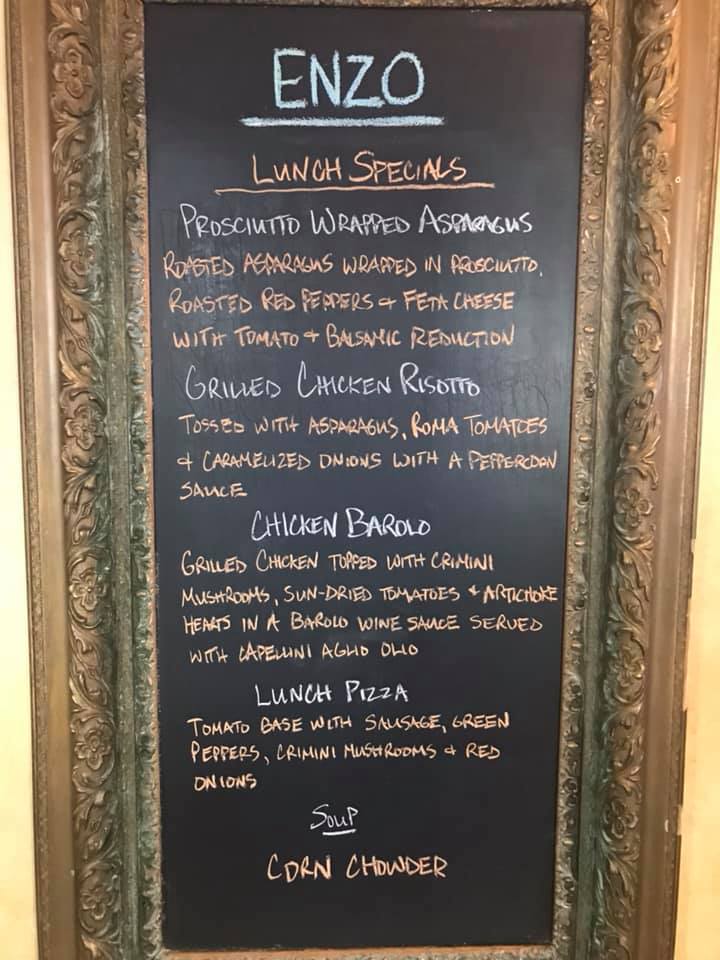 ENZO
LUNCH SPECIALS
PROSCIUTTO WRAPPED ASPARAGUS
ROASTED ASPARAGUS WRAPPED IN PROSCIUTTO,
ROASTED RED PEPPERS & FETA CHEESE
WITH TOMATO & BALSAMIC REDUCTION
GRILLED CHICKEN RISOTTO
TOSSED WITH ASPARAGUS, ROMA TOMATOES
& CARAMELIZED ONIONS WITH A PEPPERCORN
SAUCE
CHICKEN BAROLO
GRILLED CHICKEN TOPPED WITH CRIMINI
MUSHROOMS, SUN-DRIED TOMATOES & ARTICHOKE
HEARTS IN A BAROLO WINE SAUCE SERVED
WITH CAPELLINI AGLIO OLIO
LUNCH PIZZA
TOMATO BASE WITH SAUSAGE, GREEN
PEPPERS, CRIMINI MUSHROOMS & RED
ONIONS
SOUP
CORN CHOWDER